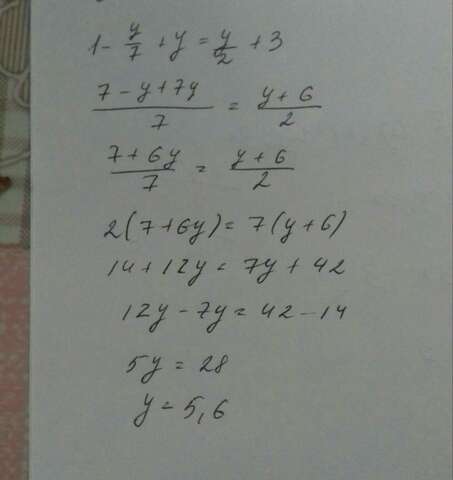 1 - y/7 + y = y/2 + 3
(7 - y + 7y)/7 = (y + 6)/2
(7 + 6y)/7 = (y + 6)/2
2(7 + 6y) = 7(y + 6)
14 + 12y = 7y + 42
12y - 7y = 42 - 14
5y = 28
y = 5,6